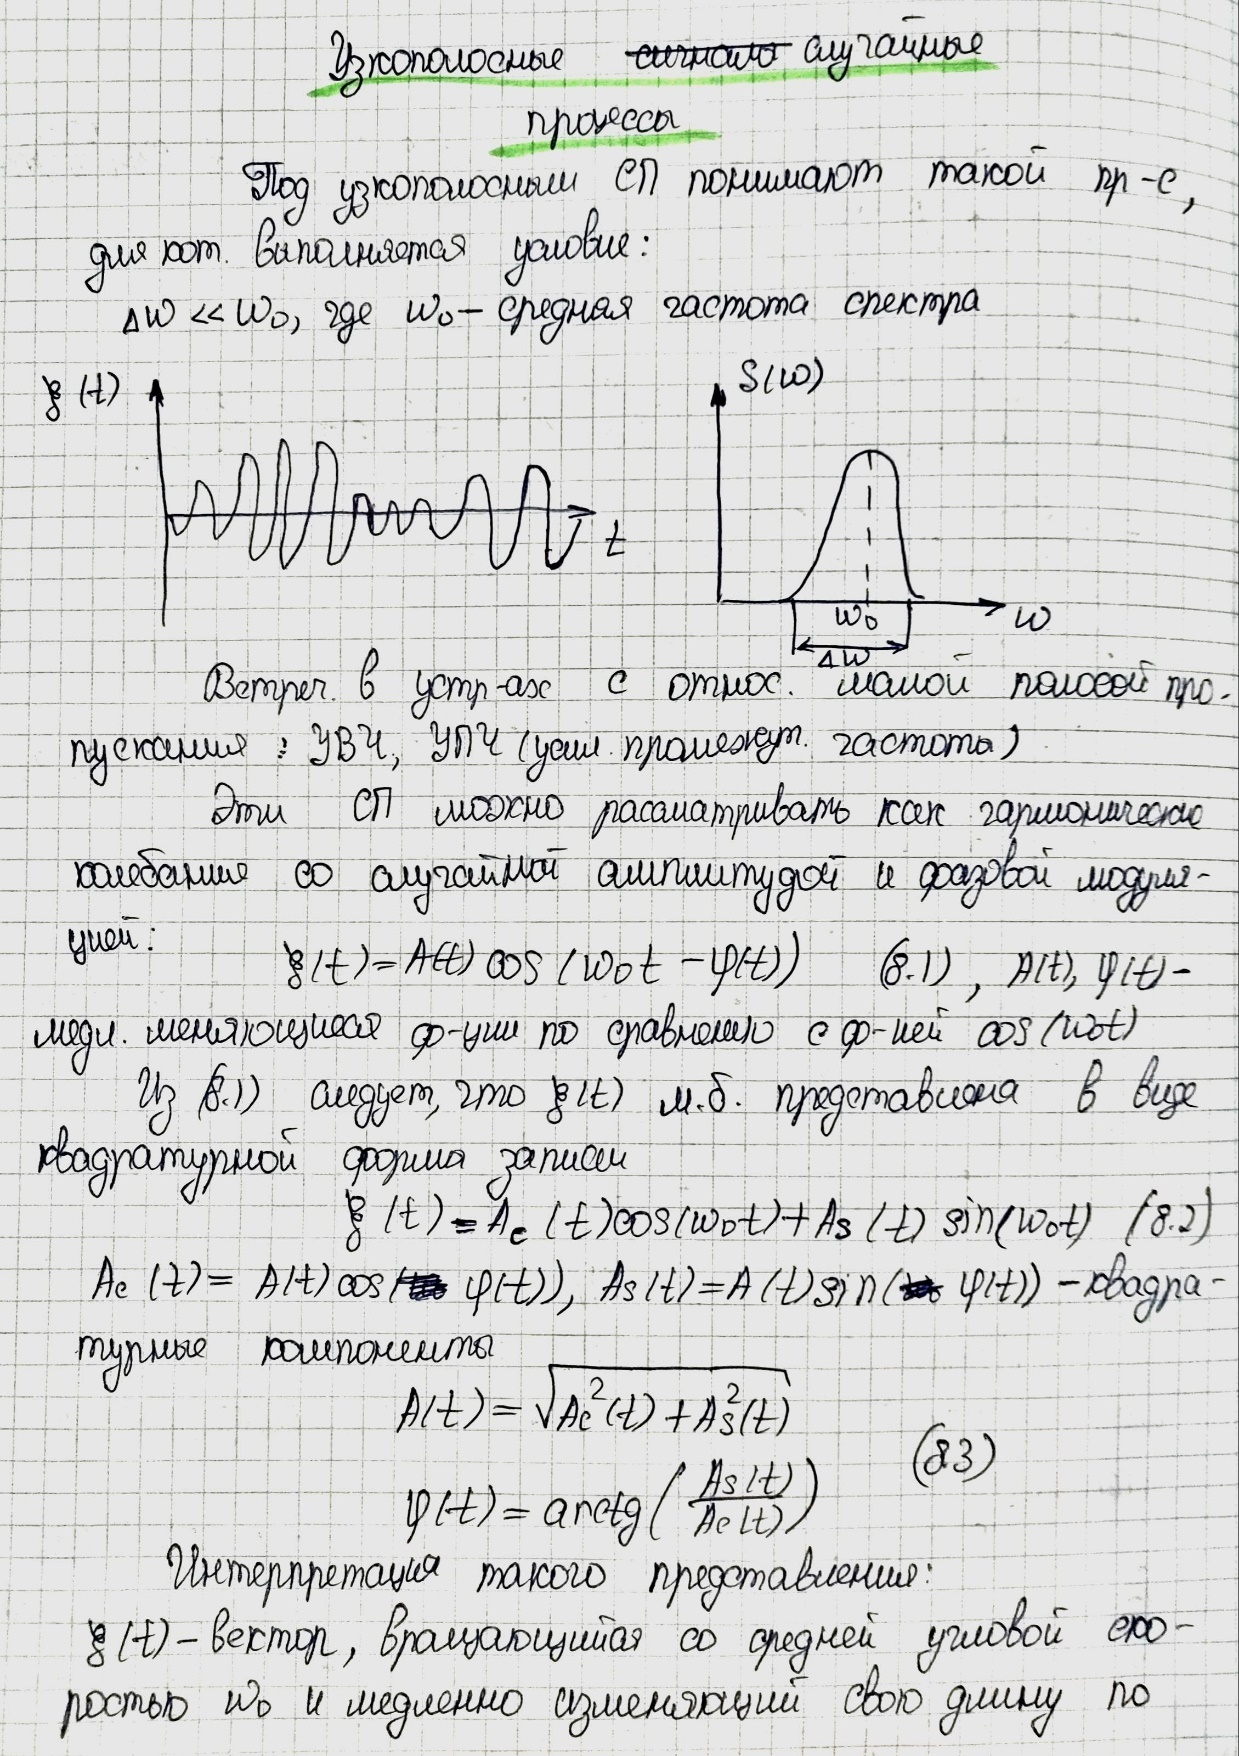 Узкополосные случайные
процессы
Под узкополосным СП понимают такой пр-с,
для кот. выполняется условие:
Δw << w₀, где w₀ – средняя частота спектра
ξ(t)
S(w)
t
w₀
w
Δw
Встреч. в устр-ах с относ. малой полосой про-
пускания: УВЧ, УПЧ (усил. промежут. частоты)
Эти СП можно рассматривать как гармонические
колебания со случайной амплитудой и фазовой модуля-
цией:
ξ(t) = A(t) cos(w₀t – φ(t)) (8.1), A(t), φ(t) –
медл. меняющиеся ф-ции по сравнению с ф-ией cos(w₀t)
Из (8.1) следует, что ξ(t) м.б. представлена в виде
квадратурной форма записи
ξ(t) = Ac(t)cos(w₀t) + As(t) sin(w₀t) (8.2)
Ac(t) = A(t) cos(φ(t)), As(t) = A(t) sin(φ(t)) – квадра-
турные компоненты
A(t) = √(Ac²(t) + As²(t))
(8.3)
φ(t) = arctg(As(t)/Ac(t))
Интерпретация такого представления:
ξ(t) – вектор, вращающийся со средней угловой ско-
ростью w₀ и медленно изменяющий свою длину по